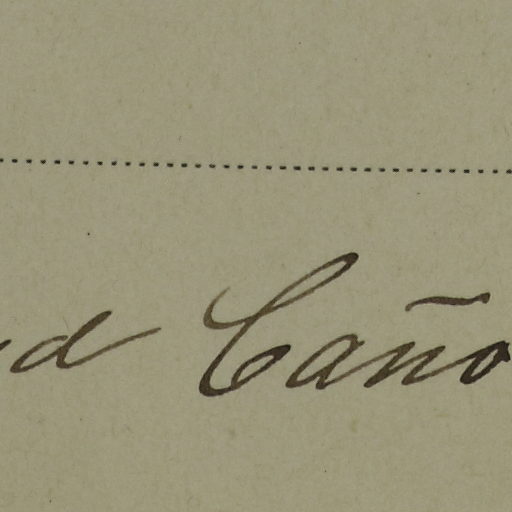 d Caño